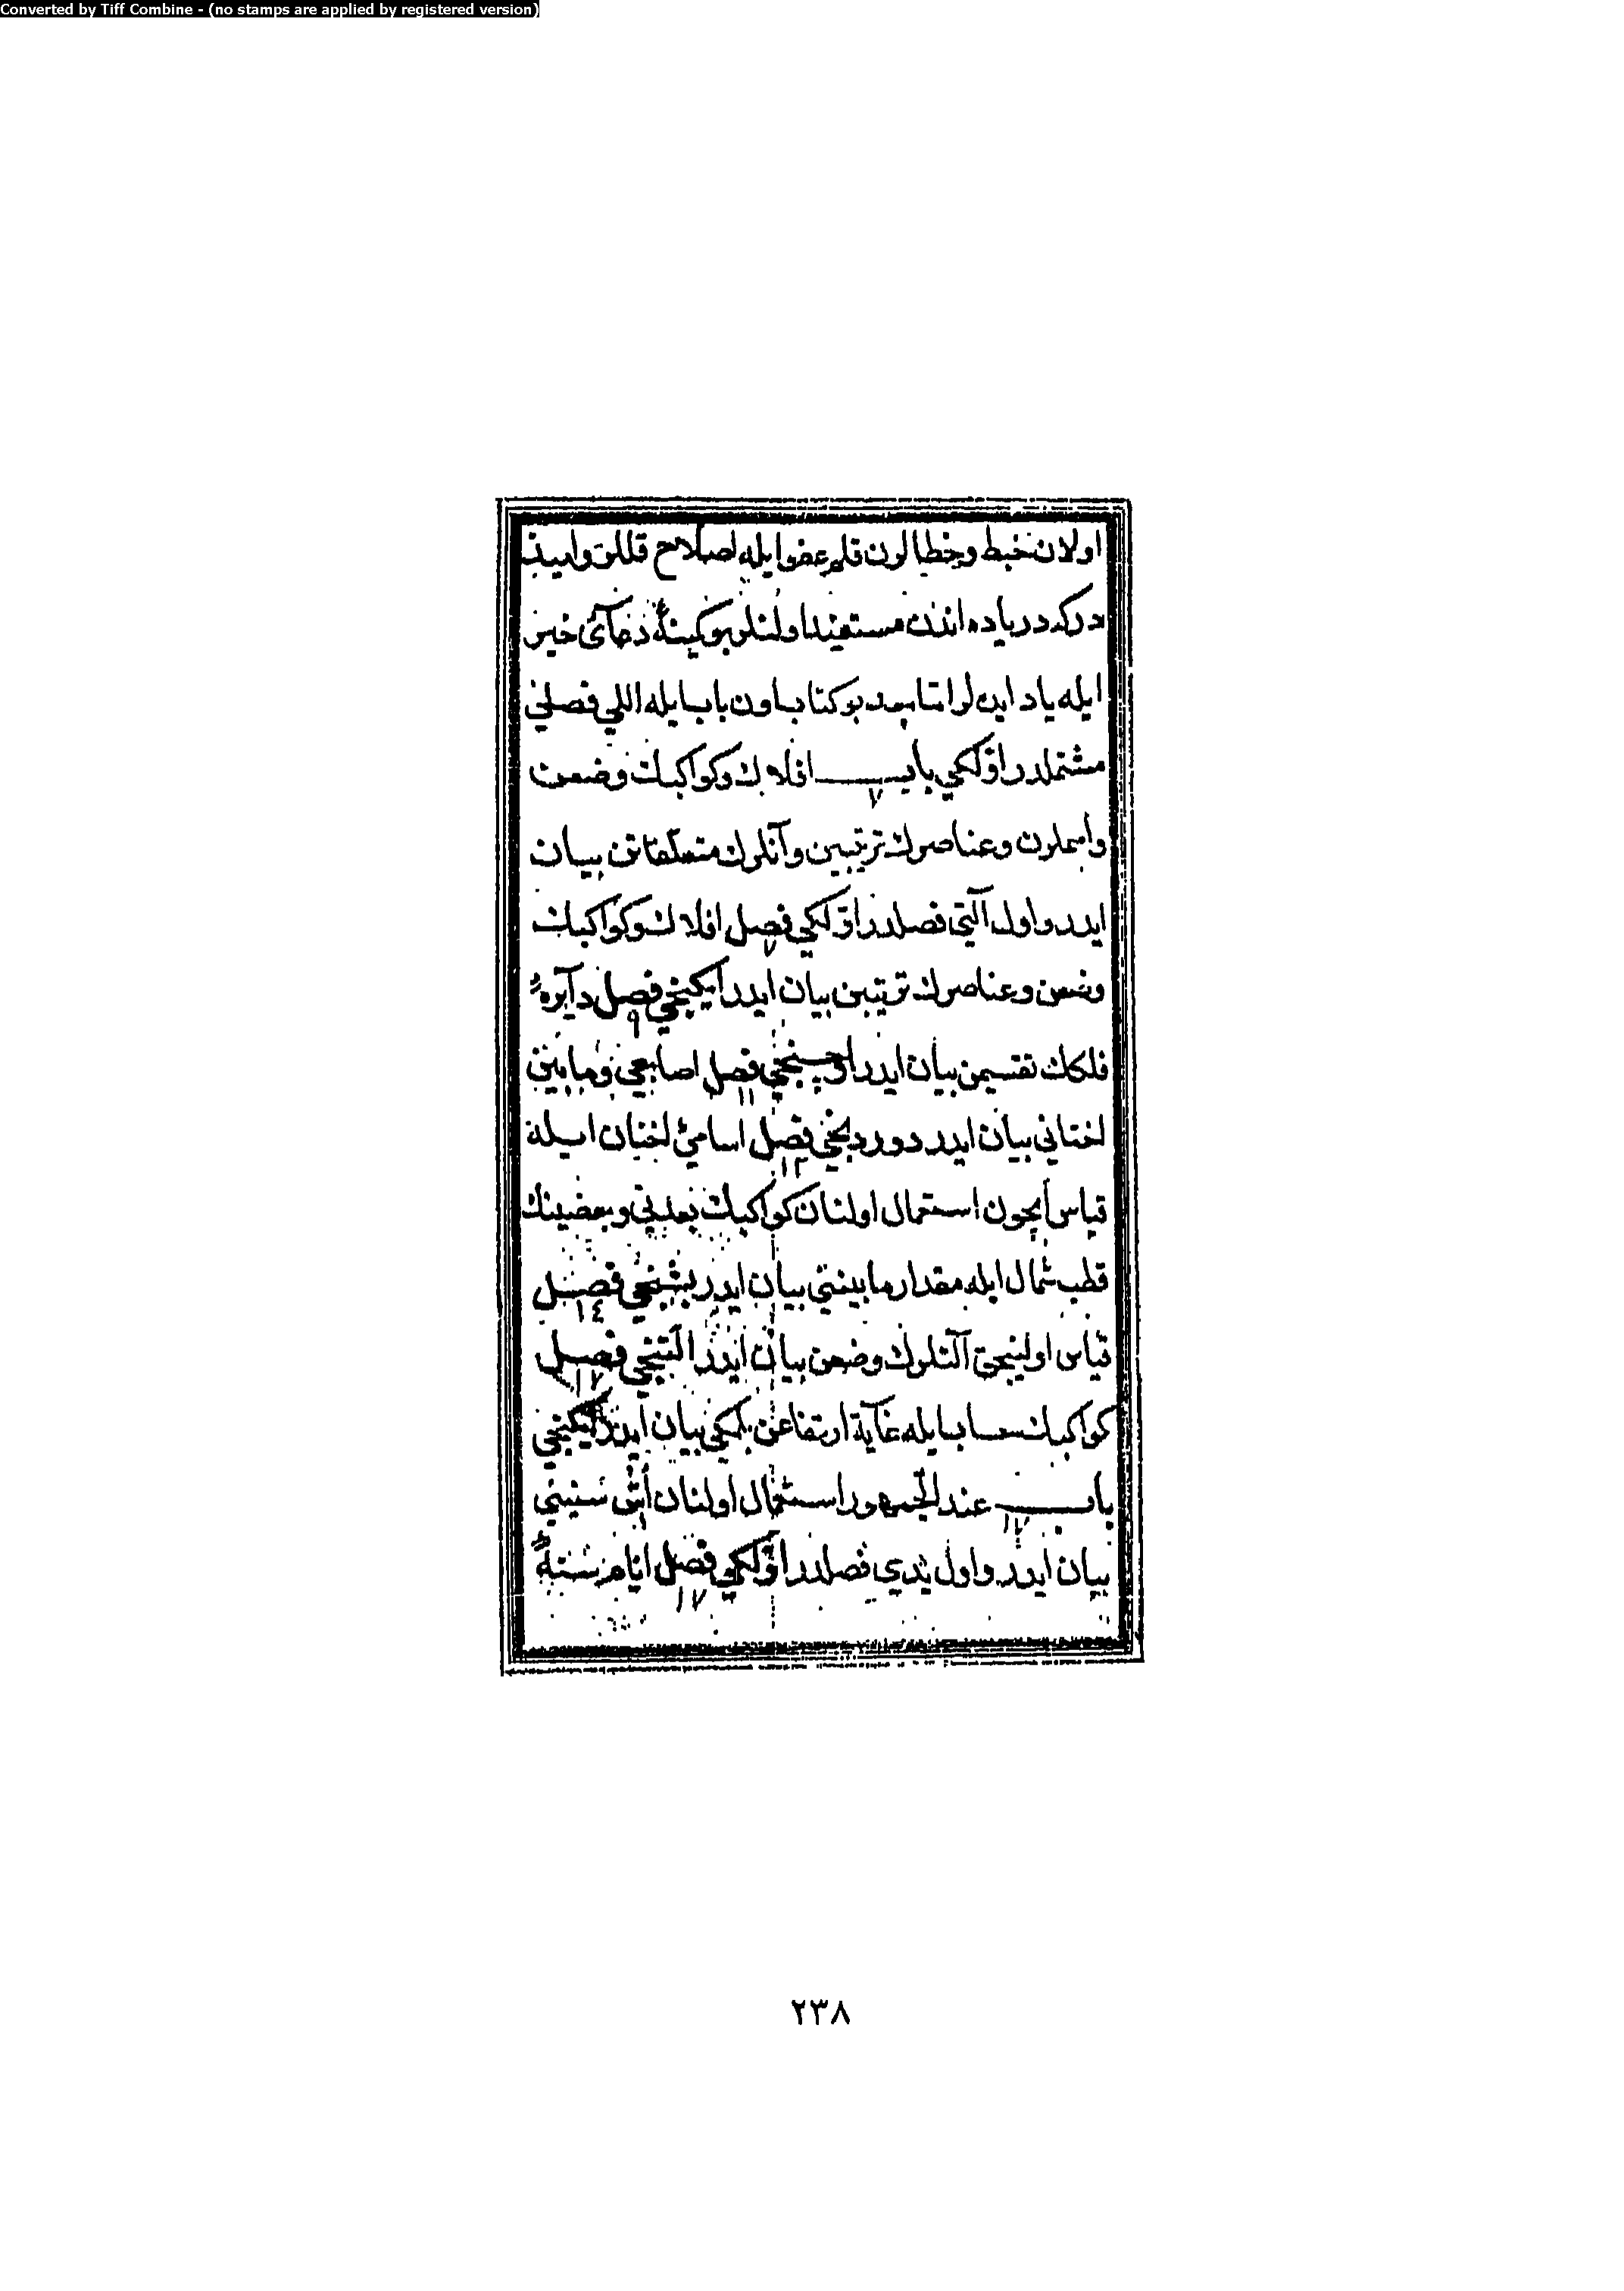 Converted by Tiff Combine - (no stamps are applied by registered version)
اولان خبط وخطالرن قلم عفو ايله اصلاح قللق واميذ
دركه درياده اندن مستفيد اولنلر بو كمينهٔ دعآئ خير
ايله ياد ايدەلر امّا بعد بو كتاب اون باب ايله اللي فصلي
مشتملدر اوّلكي باب افلاك وكواكبك وضعن
٧
وعناصرك ترتيبن وآنلرك متعلّقاتن بيان
ايدر واول آلتي فصلدر اوّلكي فصل افلاك وكواكبك
٧
وضعن وعناصرك ترتيبن بيان ايدر ايكنجي فصل دآيرهٔ
٩
فلكك تقسيمن بيان ايدر اوچنجي فصل اصابعي ومابين
١١
اخناني بيان ايدر دوردنجي فصل اسامئ اخنان ايله
١٢
قياس ايچون استعمال اولنان كواكبك بعدني وبعضينك
قطب شمال ايله مقدار مابينني بيان ايدر بشنجي فصل
١٤
قياس اولنيجق آلتلرك وضعن بيان ايدر التنجي فصل
١٧
كواكبك حسابايله غاية ارتفاعن بلمكي بيان ايدر ايكنجي
باب عند الجمهور استعمال اولنان سنيني
١٧
بيان ايدر واول يدي فصلدر اوّلكي فصل ايام سنهٔ
١٧
٢٣٨